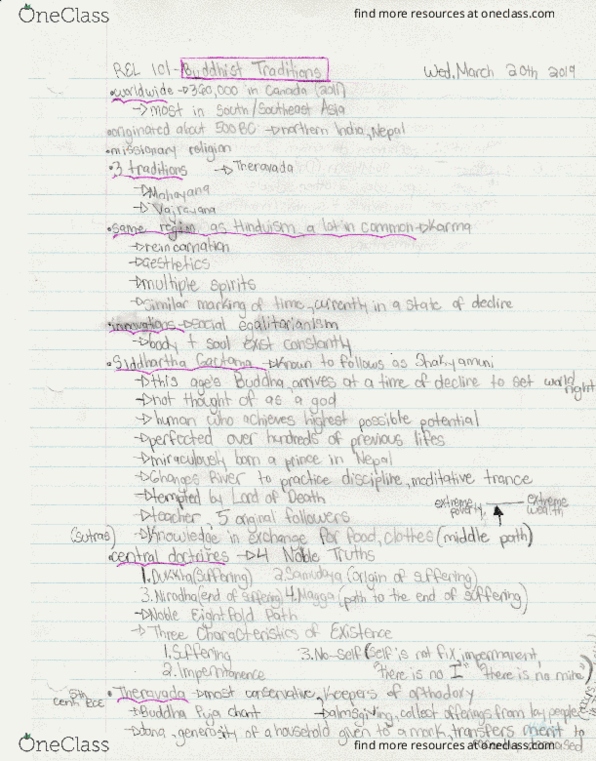 OneClass
find more resources at oneclass.com
REL 101 - Buddhist Traditions Wed, March 20th 2019
• worldwide → 320,000 in Canada (2011)
→ most in South/Southeast Asia
• originated about 500 BC → northern India, Nepal
• missionary religion
• 3 traditions → Theravada
→ Mahayana
→ Vajrayana
• same region as Hinduism, a lot in common → Karma
→ reincarnation
→ aesthetics
→ multiple spirits
→ similar marking of time, currently in a state of decline
• innovations → social egalitarianism
→ body + soul exist constantly
• Siddhartha Gautama → Known to follows as Shakyamuni
→ this age's Buddha, arrives at a time of decline to set world right
→ not thought of as a god
→ human who achieves highest possible potential
→ perfected over hundreds of previous lifes
→ miraculously born a prince in Nepal
→ Ghanges River to practice discipline, meditative trance
→ tempted by Lord of Death
extreme poverty extreme wealth
→ teacher, 5 original followers
(sutras) → Knowledge in exchange for food, clothes (middle path)
• central doctrines → 4 Noble Truths
1. Dukkha (suffering) 2. Samudaya (origin of suffering)
3. Nirodha (end of suffering) 4. Magga (path to the end of suffering)
→ Noble Eightfold Path
→ Three Characteristics of Existence
1. Suffering 3. No-self (self is not fix, impermanent,
2. Impermanence "there is no I" "there is no mine")
5th cent. BCE • Theravada → most conservative, Keepers of orthodoxy
→ Buddha Puja chant → almsgiving, collect offerings from lay people
→ dana, generosity of a household given to a monk, transfers merit to
deceased
OneClass
find more resources at oneclass.com